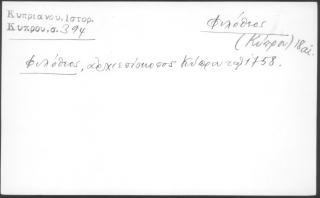 Κυπριανου, Ιστορ.
Κυπρου, σ. 394
Φιλόθεος
(Κύπρου) 18 αἰ.
Φιλόθεος, ἀρχιεπίσκοπος Κύπρου 1758.